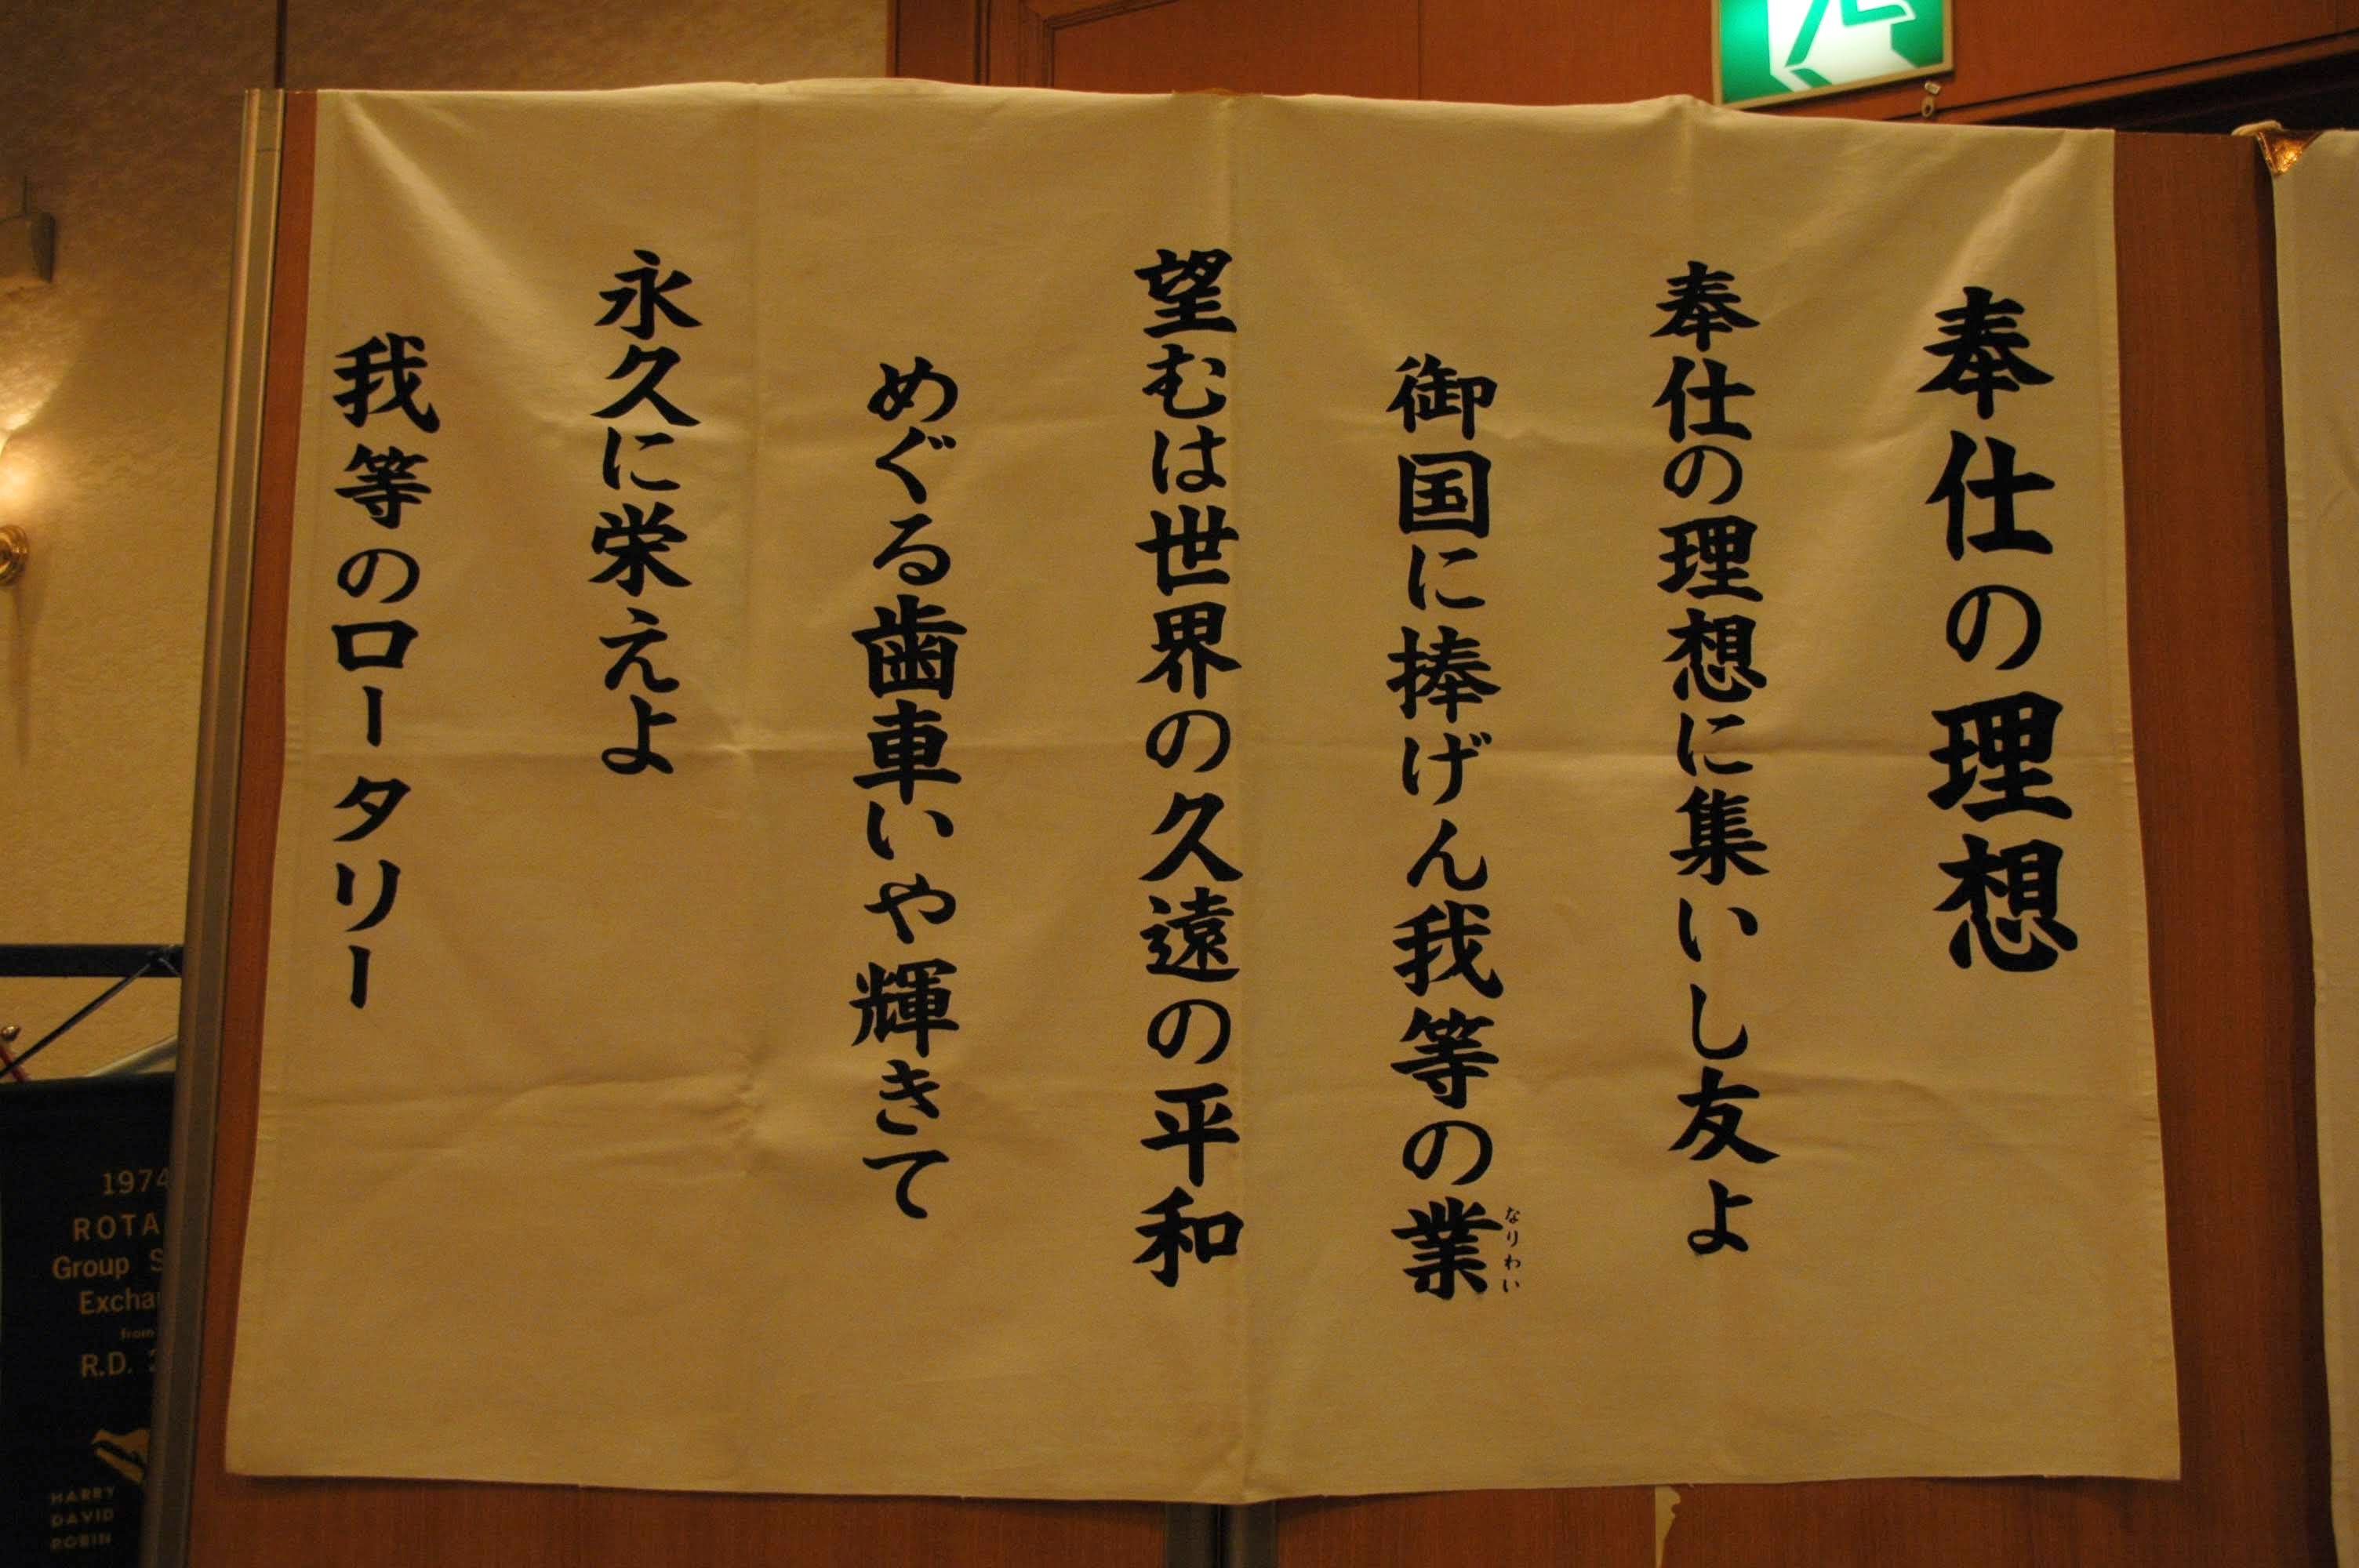 奉仕の理想
奉仕の理想に集いし友よ
御国に捧げん我等の業
なりわい
望むは世界の久遠の平和
めぐる歯車いや輝きて
永久に栄えよ
我等のロータリー
1974
Group
from
R.D.
HARRY
DAVID
ROBIN